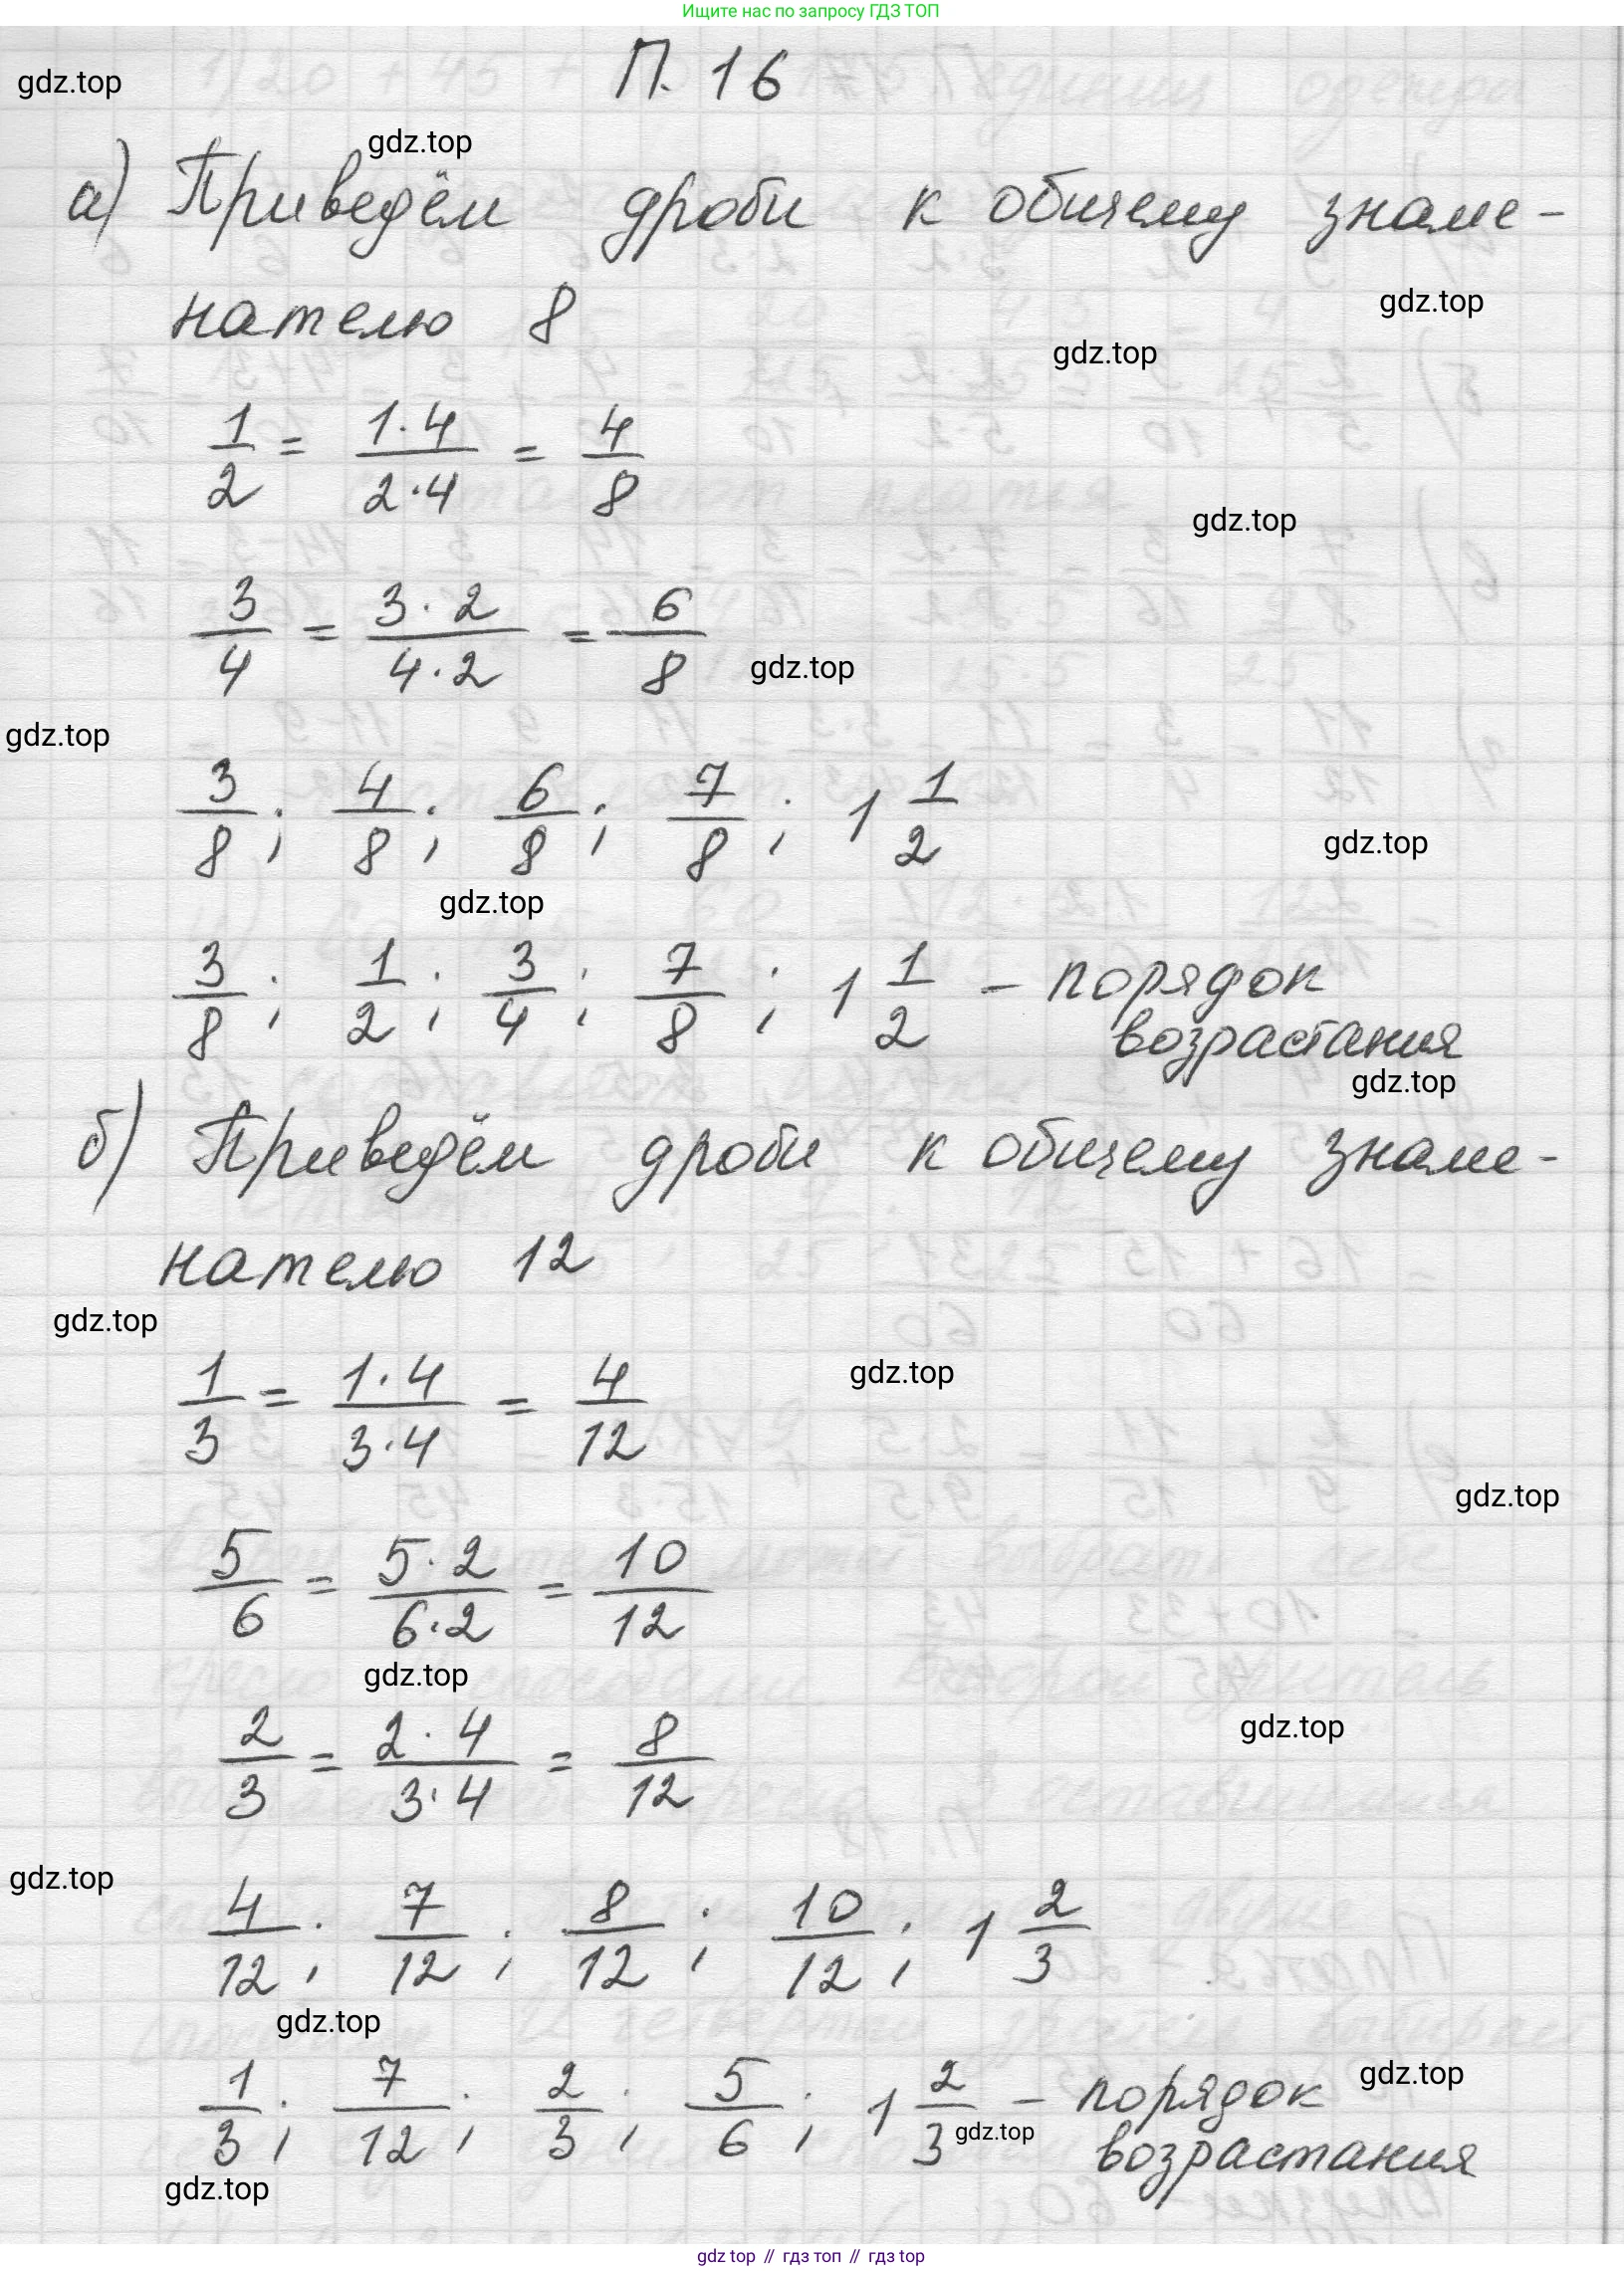 Ищите нас по запросу ГДЗ ТОП
П. 16
gdz.top
gdz.top
а) Приведём дроби к общему знаме-
gdz.top
нателю 8
gdz.top
1/2 = 1·4/2·4 = 4/8
gdz.top
3/4 = 3·2/4·2 = 6/8
gdz.top
gdz.top
3/8; 4/8; 6/8; 7/8; 1 1/2
gdz.top
gdz.top
3/8; 1/2; 3/4; 7/8; 1 1/2 – порядок
возрастания
gdz.top
б) Приведём дроби к общему знаме-
нателю 12
gdz.top
1/3 = 1·4/3·4 = 4/12
gdz.top
gdz.top
5/6 = 5·2/6·2 = 10/12
gdz.top
gdz.top
2/3 = 2·4/3·4 = 8/12
gdz.top
4/12; 7/12; 8/12; 10/12; 1 2/3
gdz.top
gdz.top
1/3; 7/12; 2/3; 5/6; 1 2/3 – порядок
gdz.top
возрастания
gdz.top
gdz top // гдз топ // gdz top